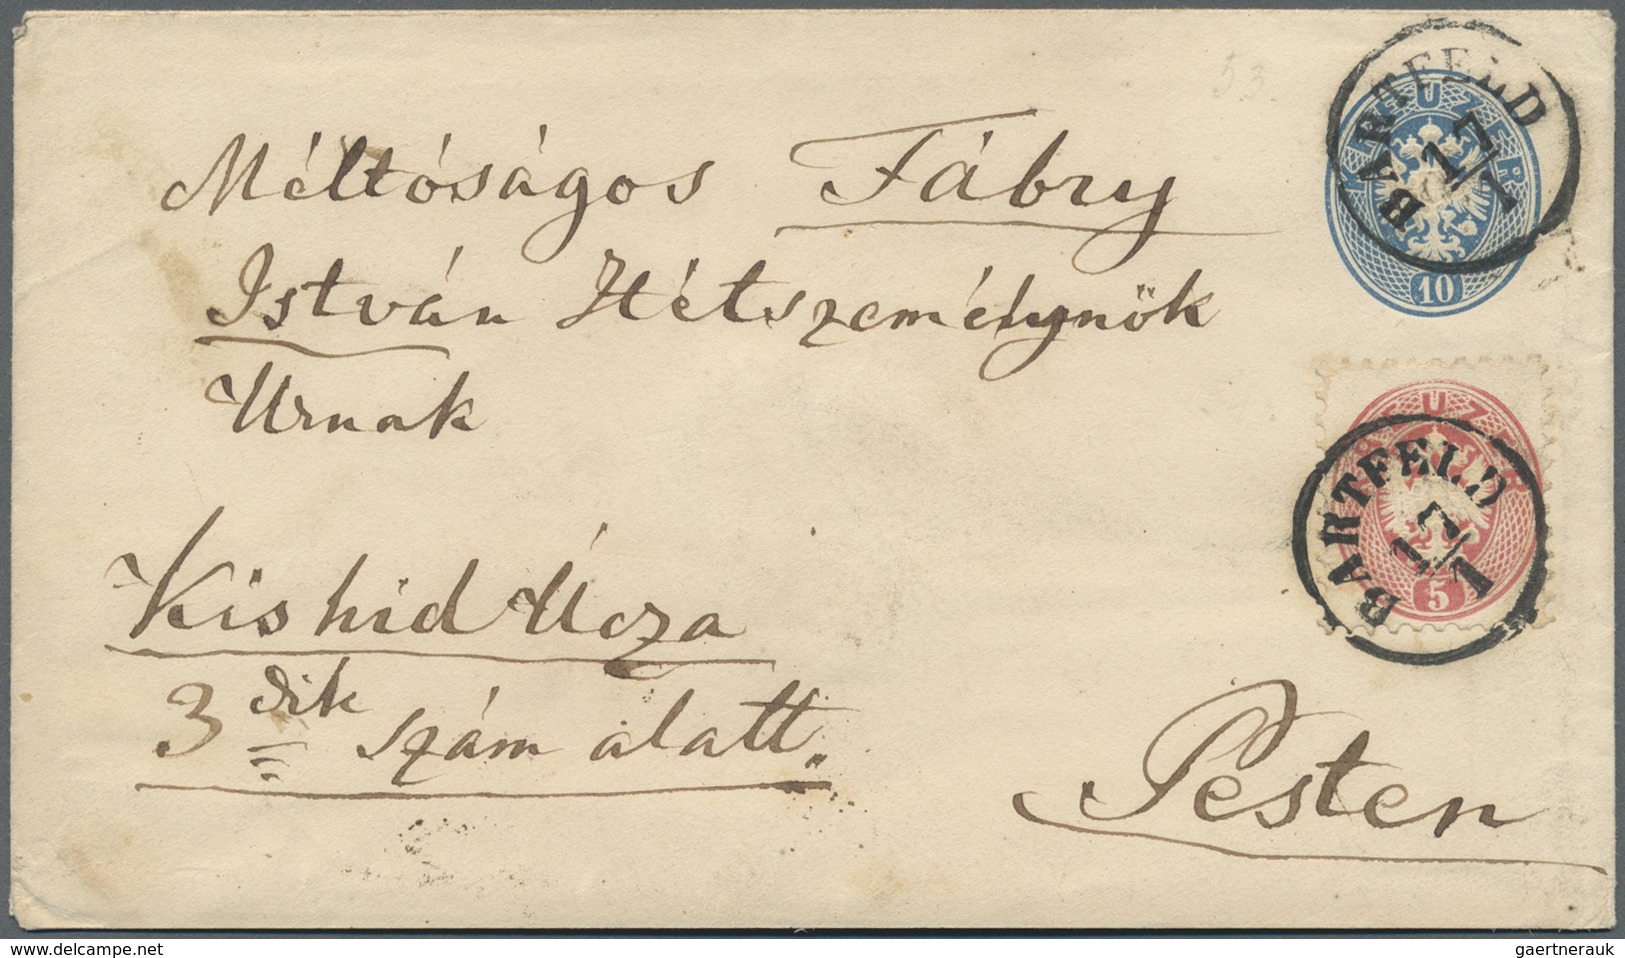 53.
BARTFELD
17/1
KREUZER
10
Méltóságos Fábry
István Hétszemélynök
Urnak
KREUZER
BARTFELD
17/1
5
Kishid Úcza
3dik szám alatt.
Pesten
www.delcampe.net
gaertnerauk